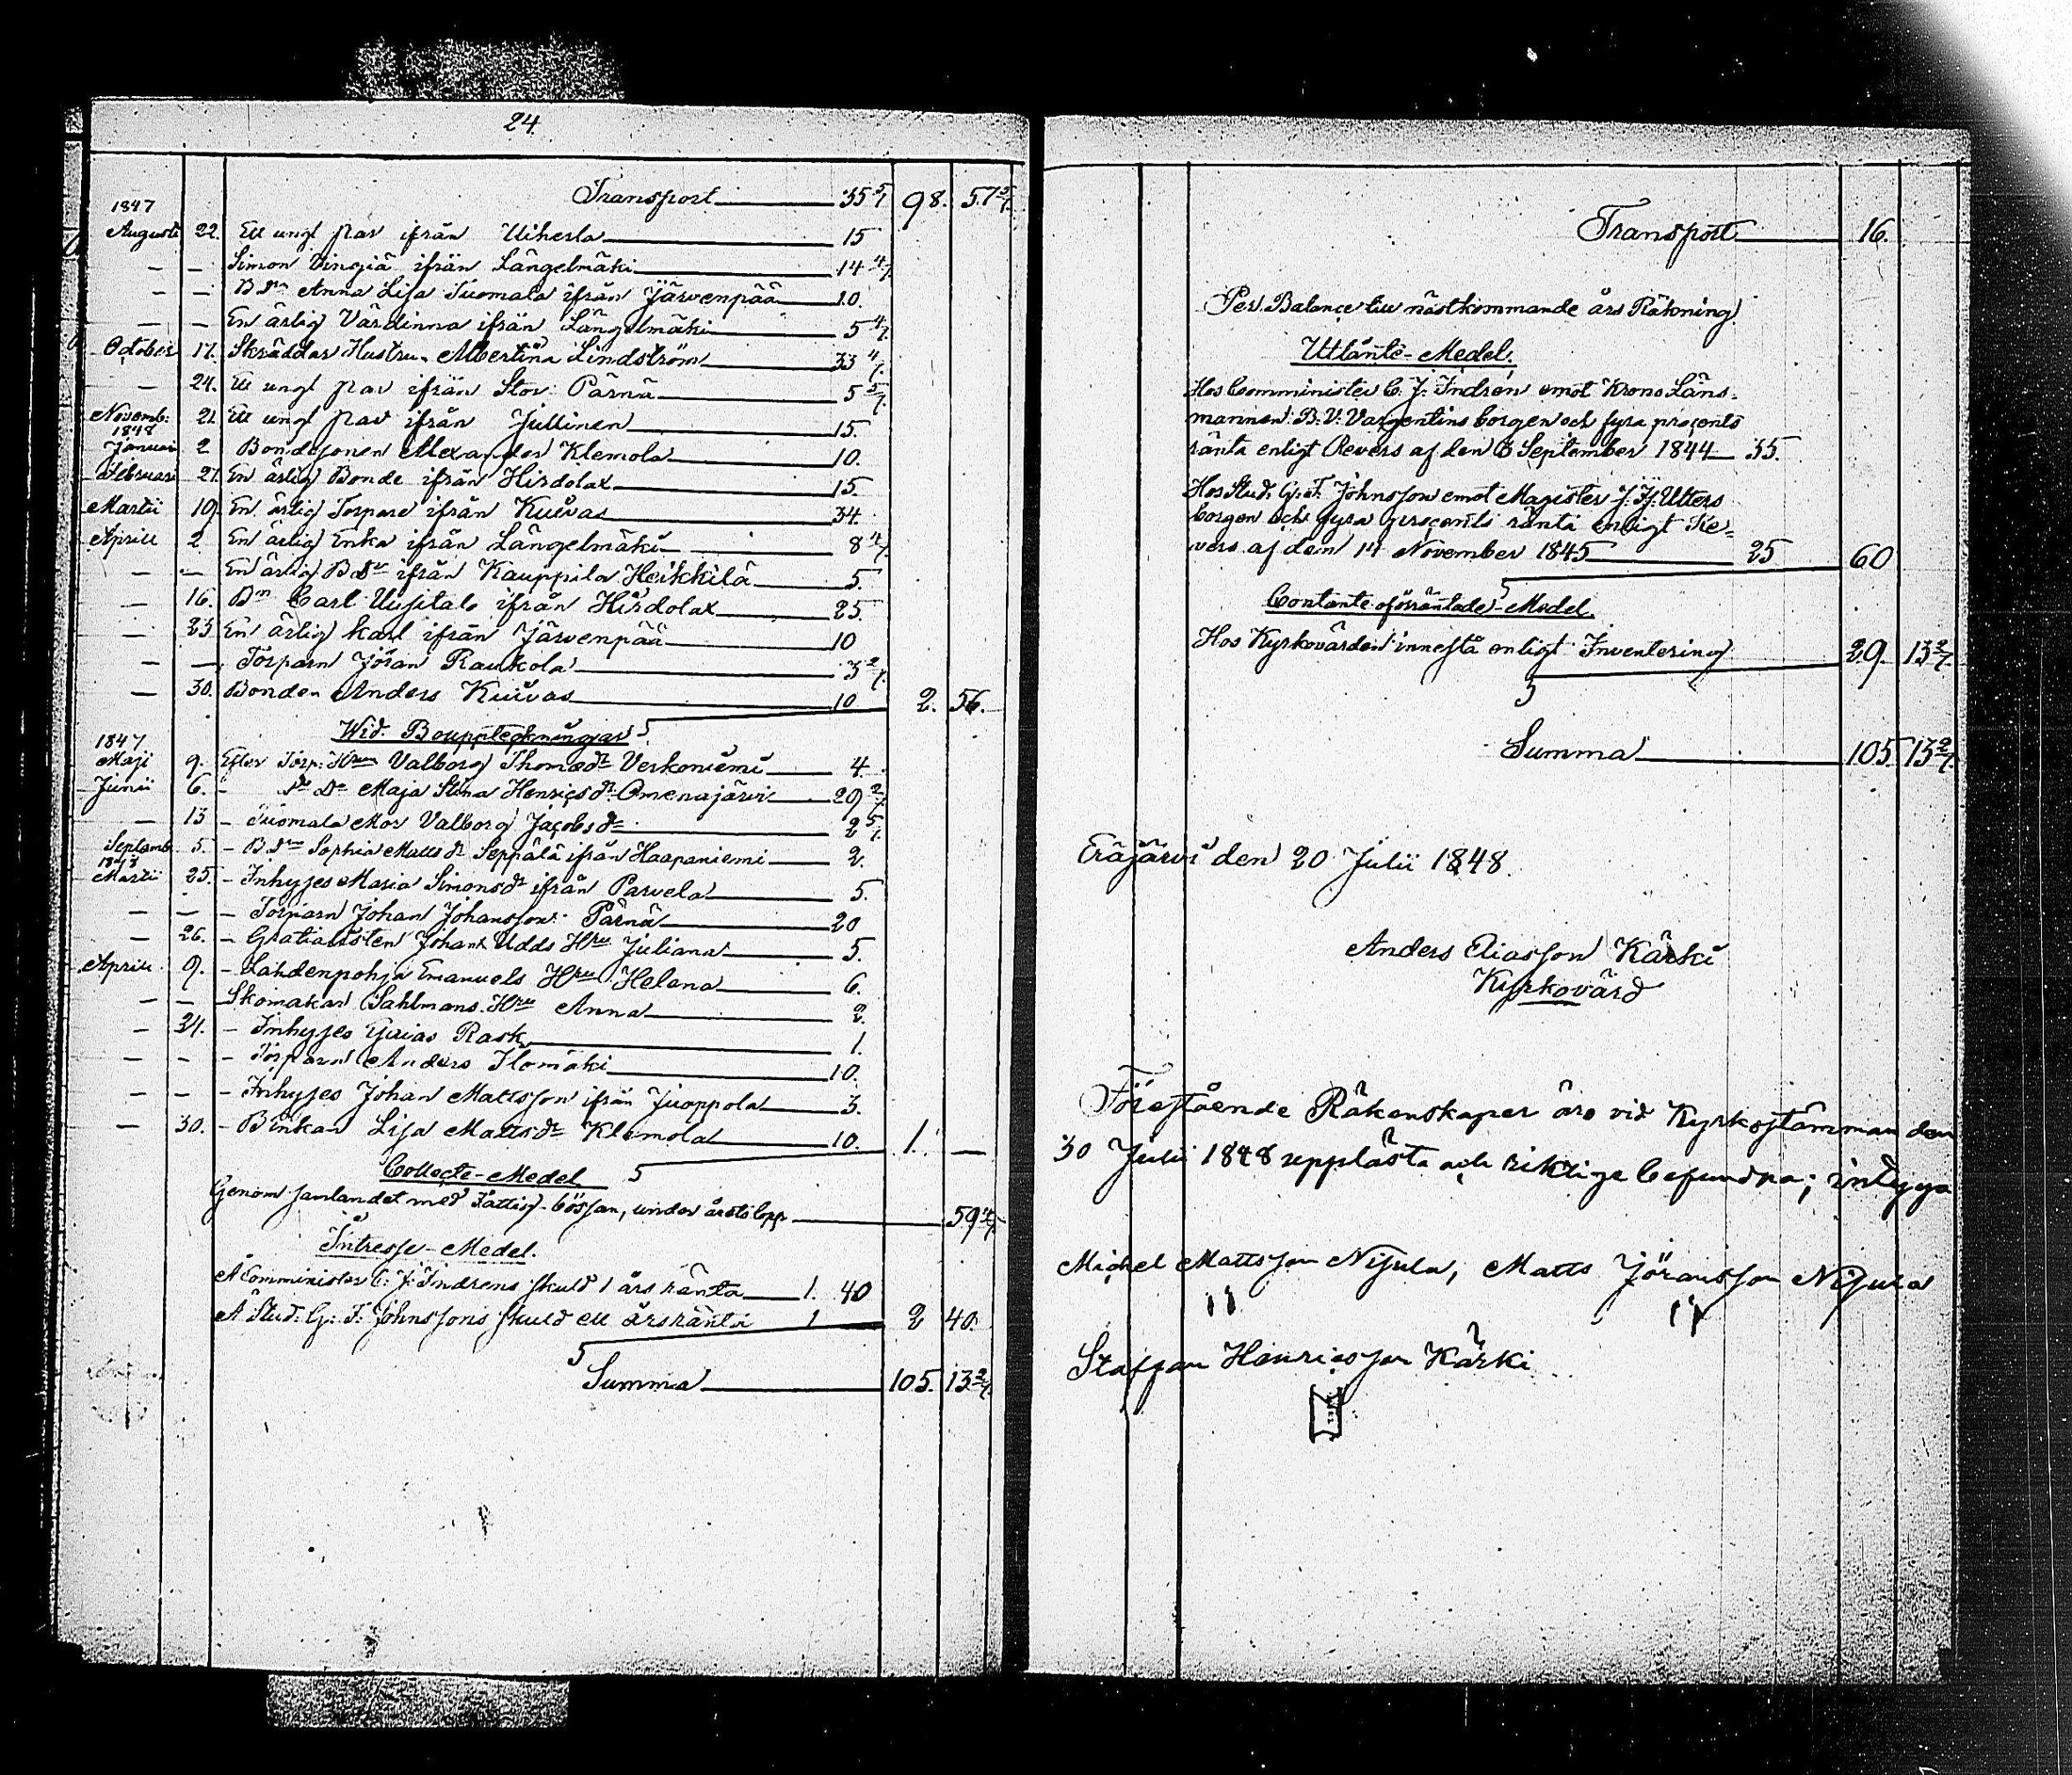 24.
Transport 35 5/7 98. 57 5/7.
1847
Augusti 22. Ett ungt par ifrån Uiherla 15
— — Simon Vinsiä ifrån Längelmäki 14 4/7.
— — B.Drn Anna Lisa Tuomala ifrån Järvenpää 10.
— — En ärlig Värdinna ifrån Längelmäki 5 4/7.
October 17. Skräddar Hustru Albertina Lindström 33 4/7.
— 24. Ett ungt par ifrån Stor Pärnä 5 5/7.
Novemb: 21. Ett ungt par ifrån Jullinen 15.
1848
Januari 2 Bondesonen Alexander Klemola 10.
Februari 21. En ärlig Bonde ifrån Hirdolax 15.
Martii 19. En ärlig Torpare ifrån Kuivas 34.
Aprill 2 En ärlig Enka ifrån Längelmäki 8 4/7.
— — En ärlig B.Dr ifrån Kauppila Heikkilä 5.
— 16. Bn Carl Uusitalo ifrån Hirdolax 25.
— 23 En ärlig karl ifrån Järvenpää 10
— — Torparn Jöran Raukola 3 2/7.
— 30. Bonden Anders Kuivas 10 2. 56.
Wid Bouppteckningar
1847
Maji 9. Efter Torp: Hrun Valborg Thomædr Verkoniemi 4.
Junii 6. - Dr Dr Maja Stina Henricsdr Omenajärvi 29 2/7.
— 13 - Tuomala Mor Valborg Jacobsdr 2 5/7.
Septemb. 5. - B.Drn Sophia Mattsdr Seppälä ifrån Haapaniemi 2.
1848
Martii 25. - Inhyses Maria Simonsdr ifrån Parvela 5.
— — - Torparn Johan Johansson Pärnä 20
— 26. - Gratialisten Johan Udds Hru Juliana 5.
Aprill 9. - Lahdenpohja Emanuels Hru Helena 6.
— — Skomakar Sahlmans Hru Anna 2.
— 24. - Inhyses Gaias Rask 1.
— — - Torparn Anders Ilomäki 10.
— — - Inhyses Johan Mattsson ifrån Juoppola 3.
— 30. - B:inkan Lisa Mattsdr Klemola 10. 1. —
Collecte-Medel
Genom samlandet med Fattig-bössan, under årets lopp 59 4/7.
Intresse-Medel.
Å Comminister C. J. Indrens skuld 1 års ränta 1. 40
Å Stud. G. F. Johnssons skuld ett årsränta 1 2 40.
Summa 105. 13 2/7.
Transport 16.
Per Balance till nästkommande års Räkning.
Utlånte-Medel.
Hos Comminister C. J. Indrén emot Krono Läns-
mannen B. V. Vargentins borgen och fyra procents
ränta enligt Revers af den 8 September 1844 35.
Hos Stud. G. F. Johnsson emot Magister J. Hj. Utters
borgen och fyra procents ränta enligt Re-
vers af den 14 November 1845 25 60
Contante oförräntade Medel.
Hos Kyrkovärden innestå enligt Inventering 29. 13 2/7.
Summa 105. 13 2/7.
Eräjärvi den 20 Julii 1848.
Anders Eliasson Kärki
Kyrkovärd
Förestående Räkenskaper äro vid Kyrkostämman den
30 Julii 1848 upplästa och riktige befundna; intyga
Michel Mattsson Nisula, Matts Jöransson Nisula
Staffan Henricsson Kärki